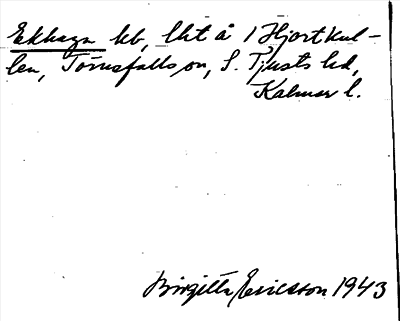 Ekhagen lb, lht å 1 Hjortkul-
len, Törnsfalls sn, S. Tjusts hd,
Kalmar l.
Birgitta Ericsson 1943